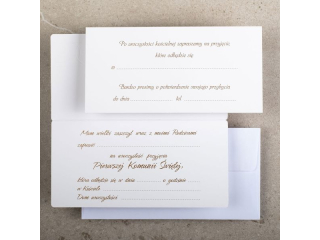 Po uroczystości kościelnej zapraszamy na przyjęcie,
które odbędzie się
w
Bardzo prosimy o potwierdzenie swojego przybycia
do dnia tel.
Mam wielki zaszczyt wraz z moimi Rodzicami
zaprosić
na uroczystość przyjęcia
Pierwszej Komunii Świętej,
która odbędzie się w dniu o godzinie
w Kościele
Dane uroczystości